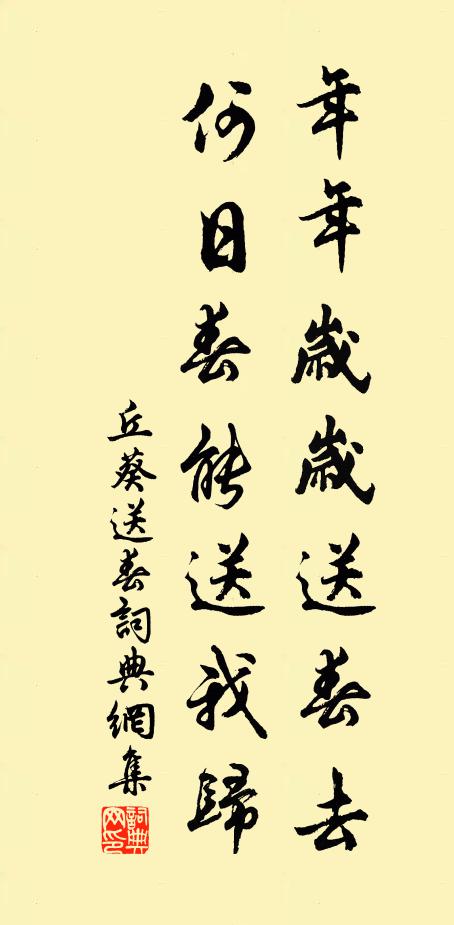 年年歲歲送春去
何日春能送我歸
丘葵送春詞典網集
詞典網印